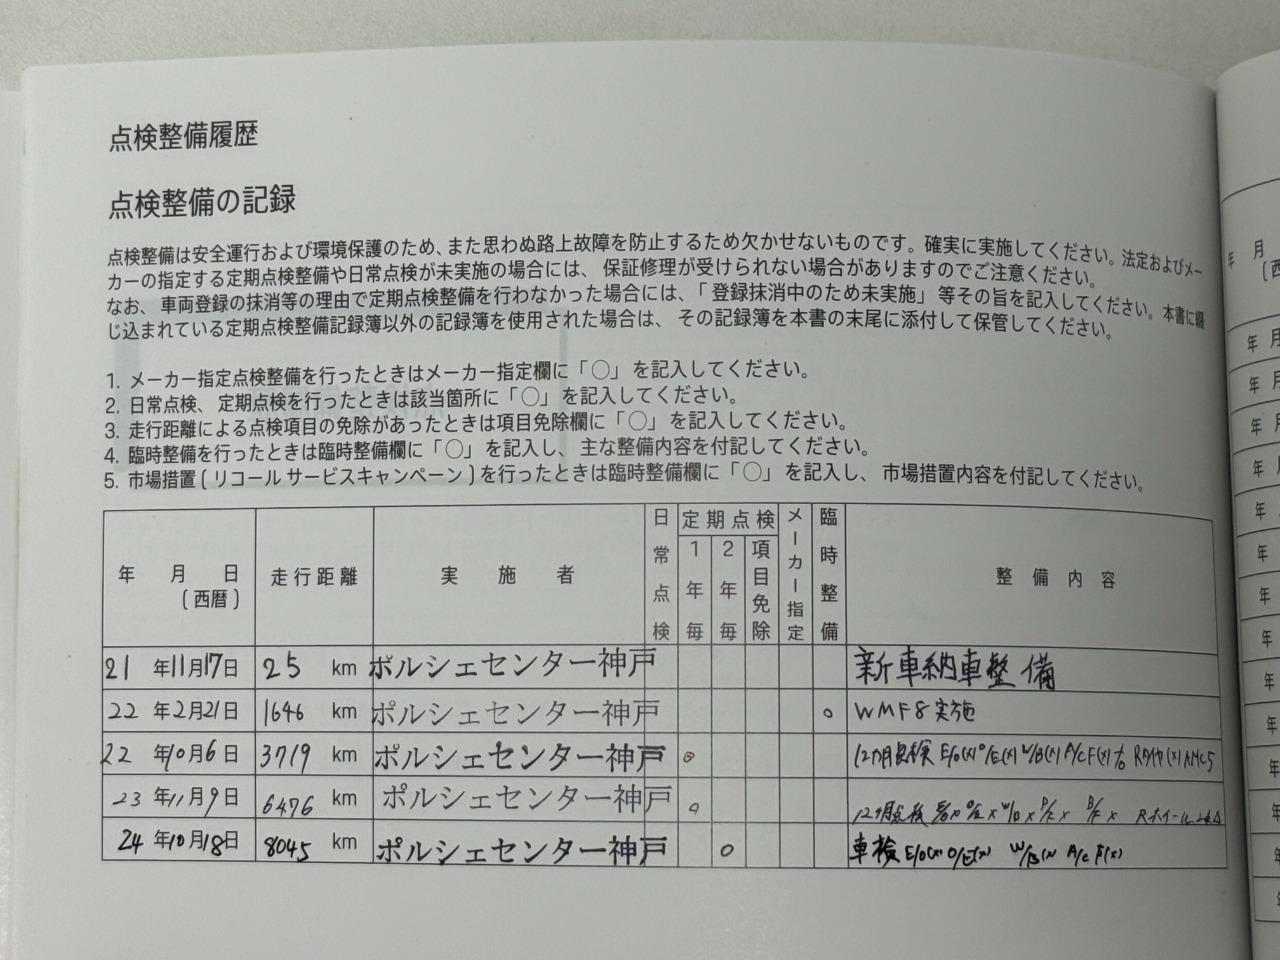 点検整備履歴
点検整備の記録
点検整備は安全運行および環境保護のため、また思わぬ路上故障を防止するため欠かせないものです。確実に実施してください。法定およびメー
カーの指定する定期点検整備や日常点検が未実施の場合には、保証修理が受けられない場合がありますのでご注意ください。
なお、車両登録の抹消等の理由で定期点検整備を行わなかった場合には、「登録抹消中のため未実施」等その旨を記入してください。本書に綴
じ込まれている定期点検整備記録簿以外の記録簿を使用された場合は、その記録簿を本書の末尾に添付して保管してください。
1. メーカー指定点検整備を行ったときはメーカー指定欄に「○」を記入してください。
2. 日常点検、定期点検を行ったときは該当箇所に「○」を記入してください。
3. 走行距離による点検項目の免除があったときは項目免除欄に「○」を記入してください。
4. 臨時整備を行ったときは臨時整備欄に「○」を記入し、主な整備内容を付記してください。
5. 市場措置(リコール サービスキャンペーン)を行ったときは臨時整備欄に「○」を記入し、市場措置内容を付記してください。
年 月 日 (西暦) 走行距離 実施者 日常点検 定期点検 1年毎 2年毎 項目免除 メーカー指定 臨時整備 整備内容
21年11月17日 25 km ポルシェセンター神戸 新車納車整備
22年2月21日 1646 km ポルシェセンター神戸 ○ WMF8実施
22年10月6日 3719 km ポルシェセンター神戸 ○ 12カ月点検 E/O(x) O/E(x) W/B(x) A/C F(x)
23年11月9日 6476 km ポルシェセンター神戸 ○ 12ヶ月点検
24年10月18日 8045 km ポルシェセンター神戸 ○ 車検 E/O(x) O/E(x) W/B(x) A/C F(x)
年 月
(西
年 月
年 月
年 月
年 月
年
年
年
年
年
年
年
年
年